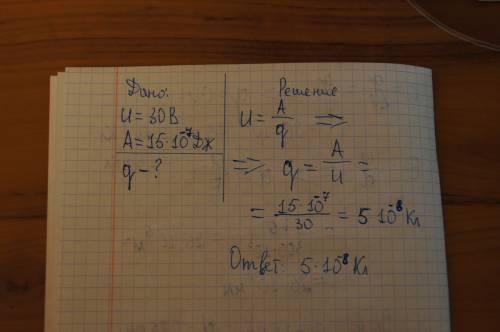 Дано:
U = 30 В
A = 15·10⁻⁷ Дж
q – ?
Решение
U = A/q ⇒
⇒ q = A/U =
= 15·10⁻⁷/30 = 5 10⁻⁸ Кл
Ответ: 5·10⁻⁸ Кл